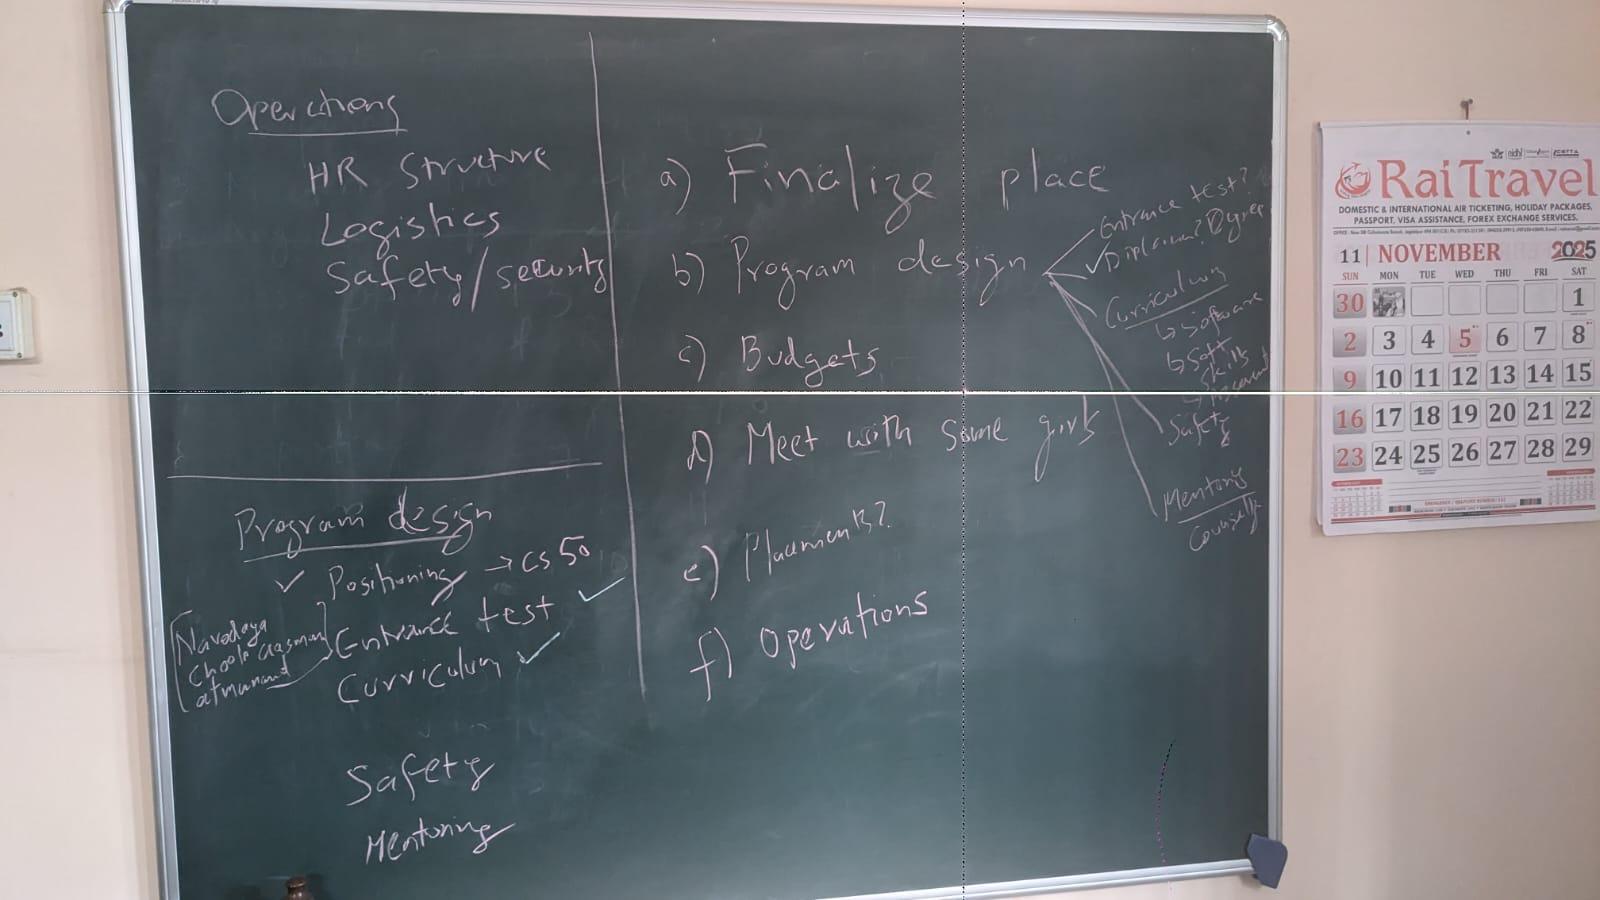 Operations
HR Structure
Logistics
Safety/security
Program design
✓ Positioning → CS 50
Entrance test ✓
Curriculum ✓
[Navodaya
atmanand
Safety
Mentoring
a) Finalize place
b) Program design
c) Budgets
d) Meet with some girls
e) Placements?
f) Operations
Entrance test?
✓ Diploma?
Curriculum
↳ Software
↳ Soft
Skills
Safety
Mentoring
Rai Travel
DOMESTIC & INTERNATIONAL AIR TICKETING, HOLIDAY PACKAGES,
PASSPORT, VISA ASSISTANCE, FOREX EXCHANGE SERVICES.
11 | NOVEMBER 2025
SUN MON TUE WED THU FRI SAT
30 1
2 3 4 5 6 7 8
9 10 11 12 13 14 15
16 17 18 19 20 21 22
23 24 25 26 27 28 29